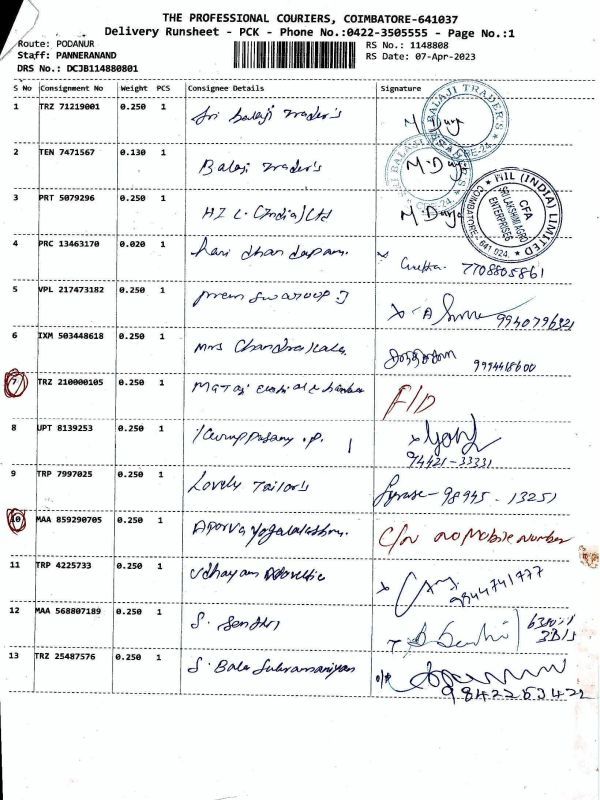 THE PROFESSIONAL COURIERS, COIMBATORE-641037
Delivery Runsheet - PCK - Phone No.:0422-3505555 - Page No.:1
Route: PODANUR
RS No.: 1148808
Staff: PANNERANAND
RS Date: 07-Apr-2023
DRS No.: DCJB114880801
S No Consignment No Weight PCS Consignee Details Signature
1 TRZ 71219001 0.250 1 Sri Balaji Trader's M. Durga
SRI BALAJI TRADER'S CBE-24
2 TEN 7471567 0.130 1 Balaji Trader's M. Durga
SRI BALAJI TRADER'S CBE-24
3 PRT 5079296 0.250 1 HIL (India) Ltd M. Durga
HIL (INDIA) LIMITED
CFA
SRI LAKSHMI AGRO
ENTERPRISES
COIMBATORE - 641 024.
4 PRC 13463170 0.020 1 Hari dhandapani. x 7708805861
5 VPL 217473182 0.250 1 Prem Swaroop J x 9940796321
6 IXM 503448618 0.250 1 Mrs Chandralkala. 9994418600
7 TRZ 210000105 0.250 1 Mataji F/D
8 UPT 8139253 0.250 1 Karuppasamy . P. x
94421-33331
9 TRP 7997025 0.250 1 Lovely Tailor's 98945-13251
10 MAA 859290705 0.250 1 Aporva C/N no Mobile Number
11 TRP 4225733 0.250 1 Udhayam x
9844741977
12 MAA 568807189 0.250 1 S. Senthil
13 TRZ 25487576 0.250 1 S. Bala Subramaniyan
9842253422